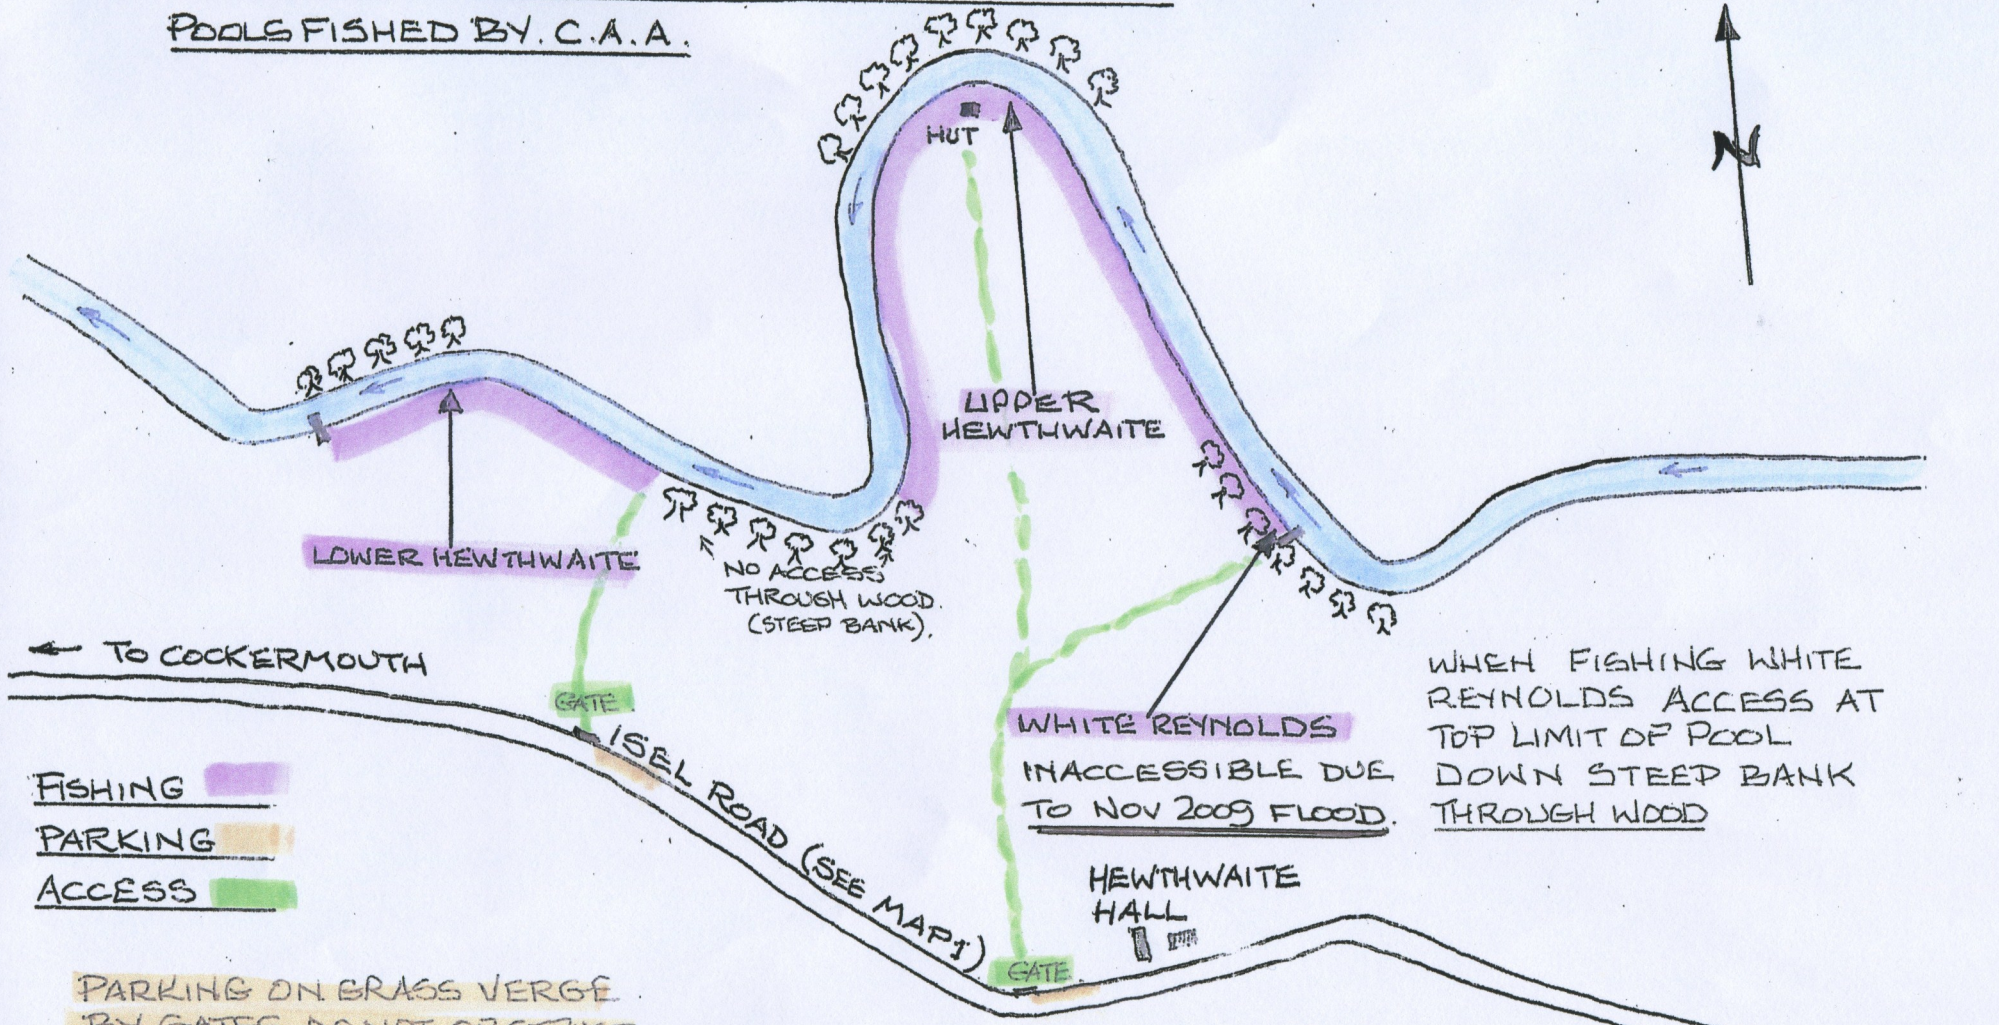 POOLS FISHED BY. C.A.A.
N
HUT
UPPER
HEWTHWAITE
LOWER HEWTHWAITE
NO ACCESS
THROUGH WOOD.
(STEEP BANK).
← TO COCKERMOUTH
GATE.
ISEL ROAD (SEE MAP 1)
WHITE REYNOLDS
INACCESSIBLE DUE
TO NOV 2009 FLOOD.
WHEN FISHING WHITE
REYNOLDS ACCESS AT
TOP LIMIT OF POOL
DOWN STEEP BANK
THROUGH WOOD
FISHING
PARKING
ACCESS
HEWTHWAITE
HALL
GATE.
PARKING ON GRASS VERGE
BY GATES DO NOT